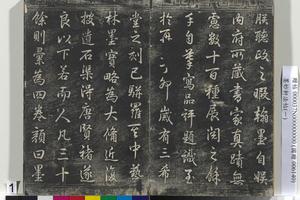 朕聽政之暇翰墨自娛
內府所藏書家真蹟無
慮數十百種展閱之餘
手自摹寫品評題識至
於再丁卯歲有三希
堂之刻已駢羅至中藝
林墨寶略為大備近復
按造石渠得唐賢褚遂
良以下若而人凡三十
餘則彙為四卷顏曰墨
1